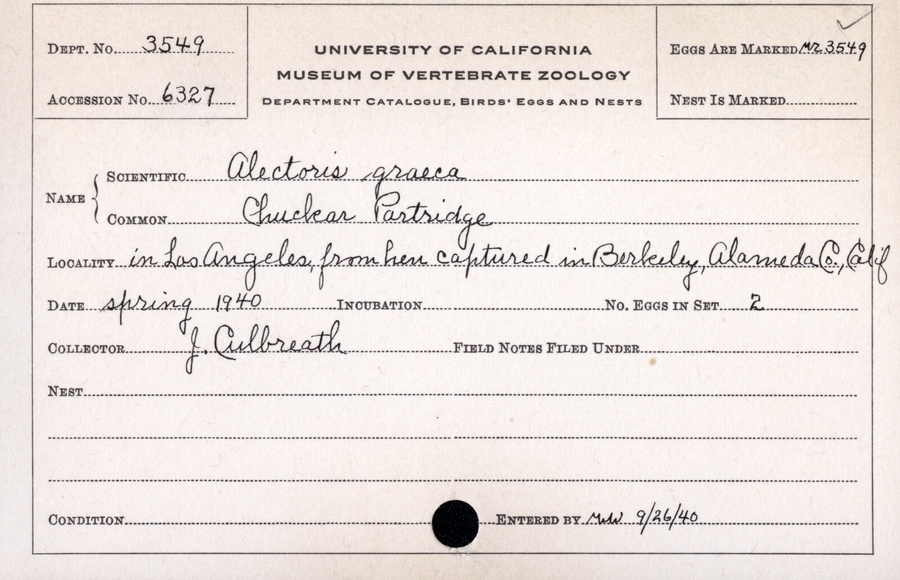 DEPT. NO. 3549
ACCESSION NO. 6327
UNIVERSITY OF CALIFORNIA
MUSEUM OF VERTEBRATE ZOOLOGY
DEPARTMENT CATALOGUE, BIRDS' EGGS AND NESTS
EGGS ARE MARKED MVZ 3549
NEST IS MARKED
NAME
SCIENTIFIC Alectoris graeca
COMMON Chuckar Partridge
LOCALITY in Los Angeles, from hen captured in Berkeley, Alameda Co., Calif
DATE spring 1940 INCUBATION NO. EGGS IN SET 2
COLLECTOR J. Culbreath FIELD NOTES FILED UNDER
NEST
CONDITION ENTERED BY 9/26/40